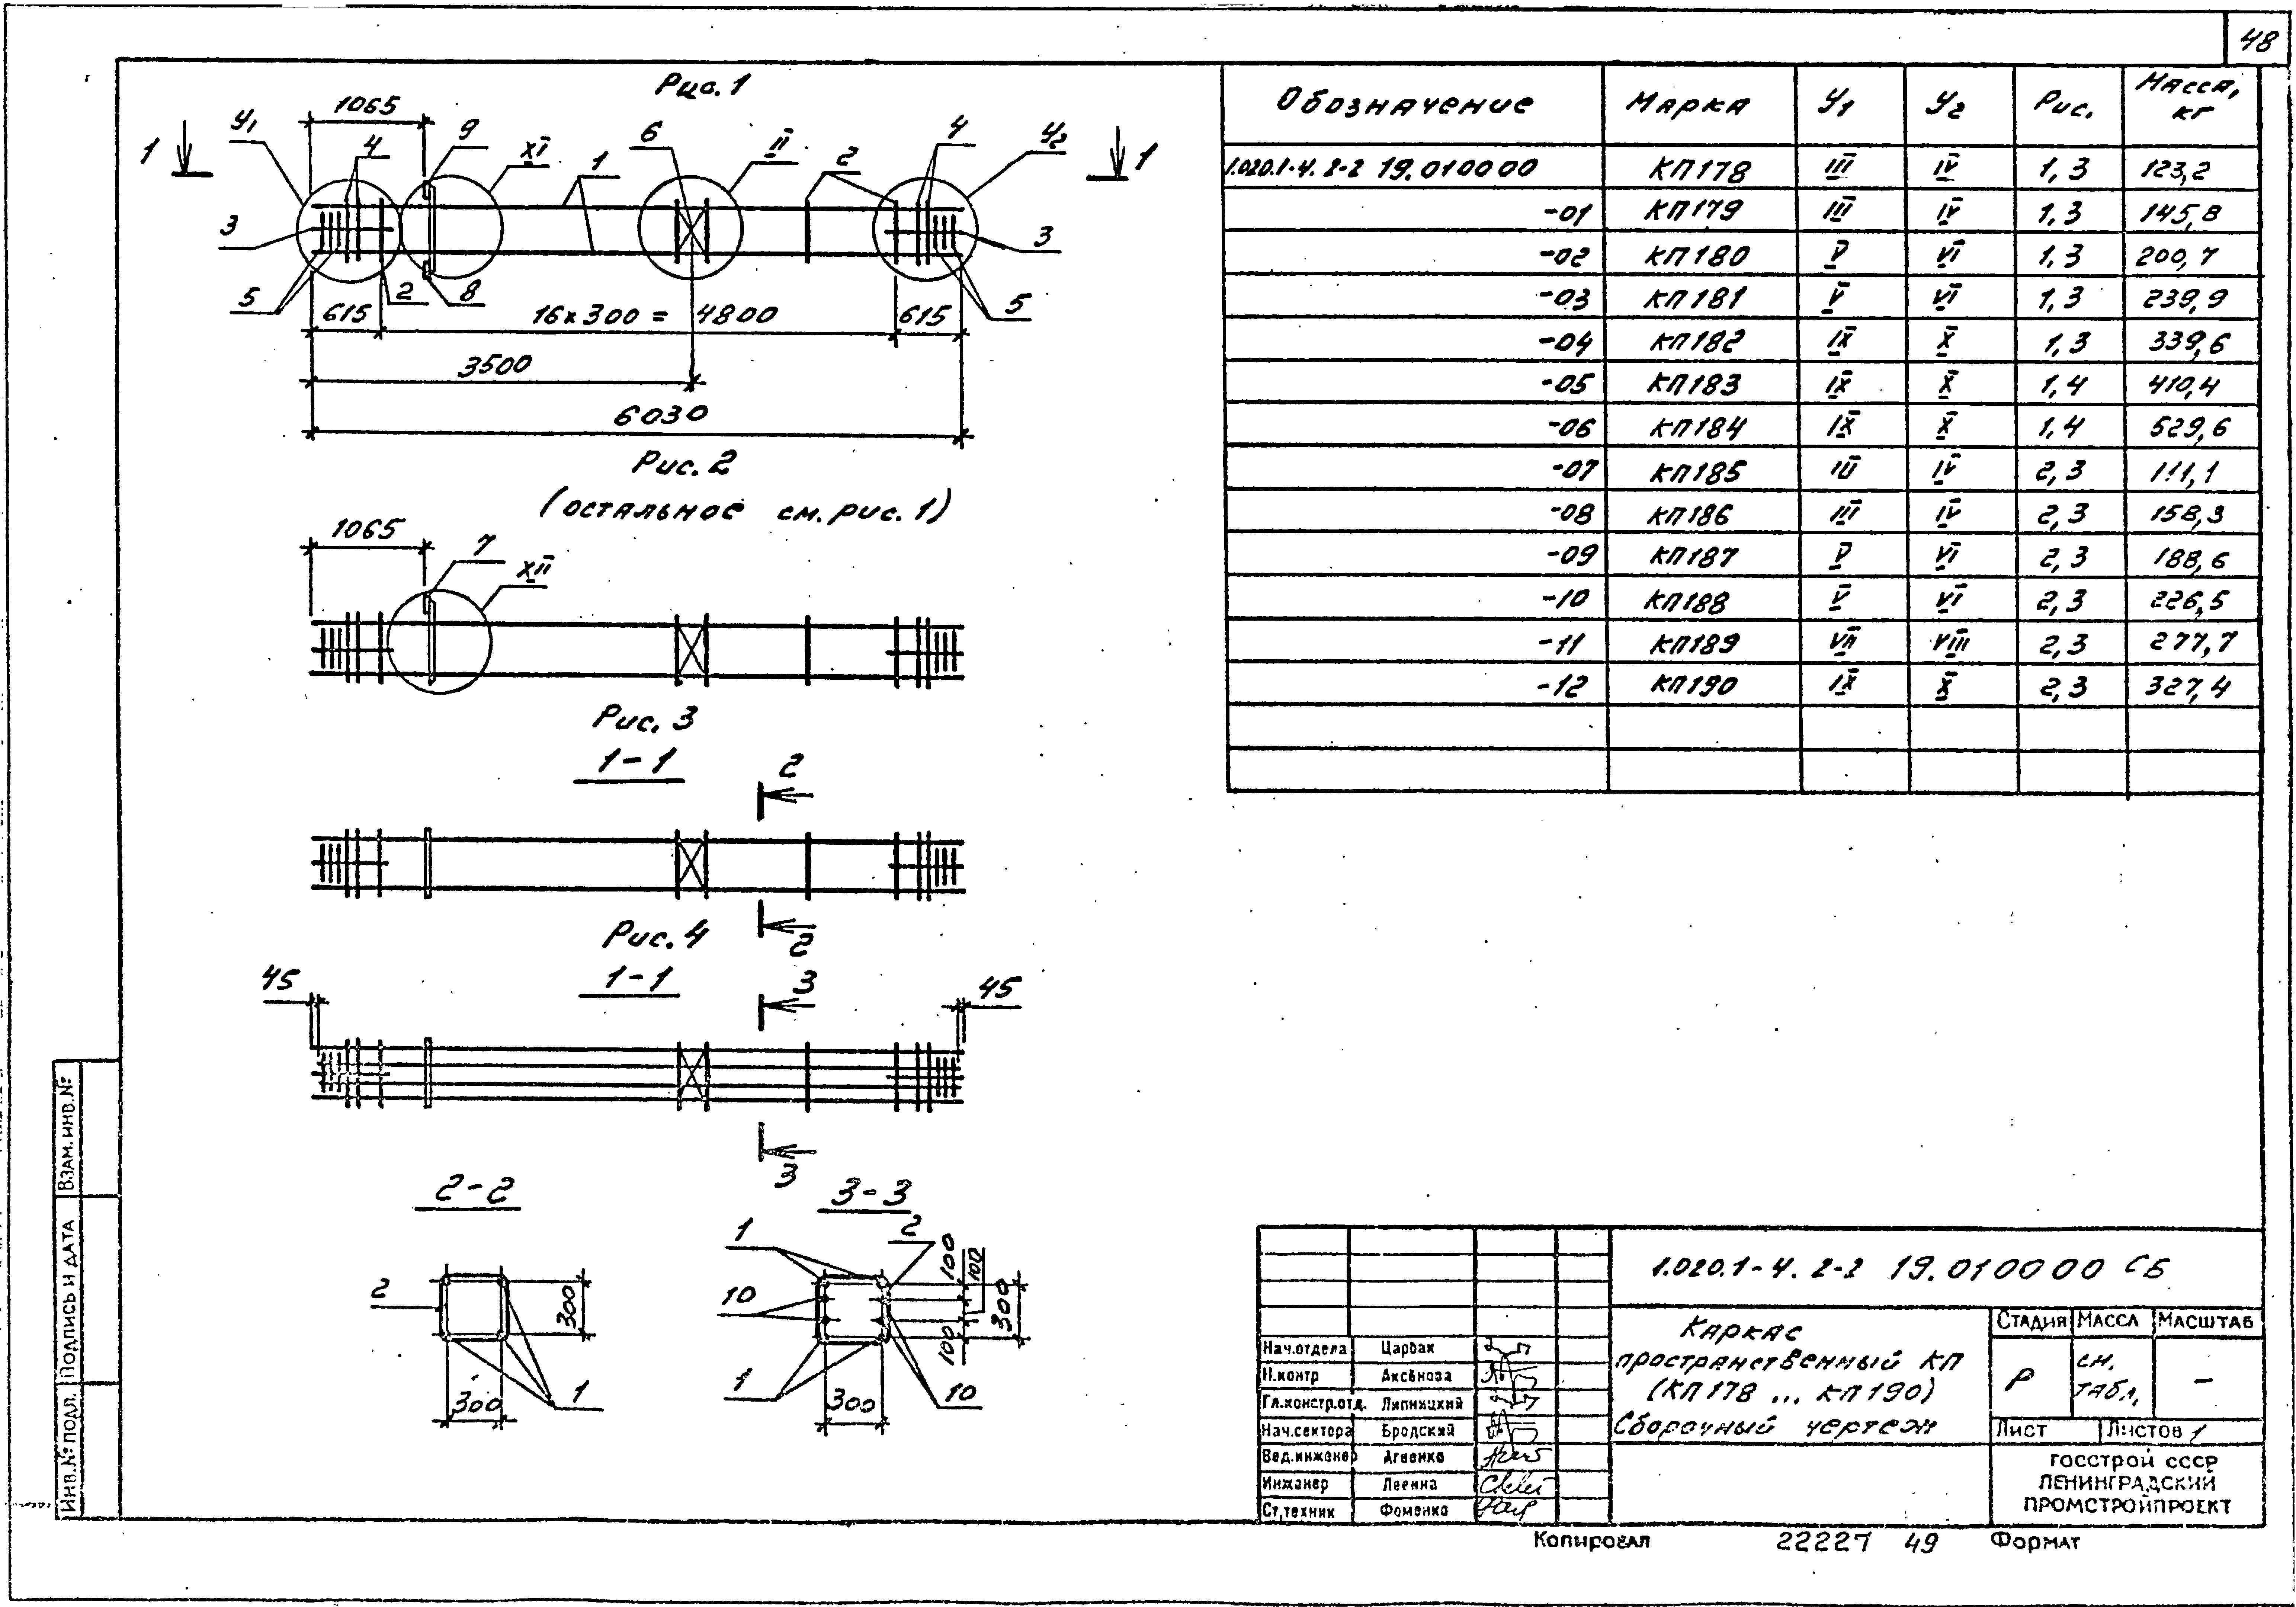 48
Рис. 1
1065
У1
4
9
XI
6
1
II
2
4
У2
1
1
3
3
5
2
8
5
615
16 х 300 = 4800
615
3500
6030
Рис. 2
(остальное см. рис. 1)
1065
7
XII
Рис. 3
1-1
2
2
Рис. 4
1-1
45
3
45
3
2-2
2
300
300
1
3-3
1
2
10
100
100
100
300
1
300
10
Обозначение Марка У1 У2 Рис. Масса, кг
1.020.1-4. 2-2 19.010000 КП178 III IV 1, 3 123,2
-01 КП179 III IV 1, 3 145,8
-02 КП180 V VI 1, 3 200,7
-03 КП181 V VI 1, 3 239,9
-04 КП182 IX X 1, 3 339,6
-05 КП183 IX X 1, 4 410,4
-06 КП184 IX X 1, 4 529,6
-07 КП185 III IV 2, 3 111,1
-08 КП186 III IV 2, 3 158,3
-09 КП187 V VI 2, 3 188,6
-10 КП188 V VI 2, 3 226,5
-11 КП189 VII VIII 2, 3 277,7
-12 КП190 IX X 2, 3 327,4
1.020.1-4. 2-2 19.010000 СБ
Каркас
пространственный КП
(КП178 ... КП190)
Сборочный чертеж
Стадия Масса Масштаб
Р см. табл. -
Лист Листов 1
Госстрой СССР
Ленинградский
Промстройпроект
Нач.отдела Царбак
Н.контр Аксёнова
Гл.констр.отд. Липницкий
Нач.сектора Бродский
Вед.инженер Агеенко
Инженер Левина
Ст.техник Фоменко
Копировал 22227 49 Формат
Инв.№ подл. Подпись и дата Взам.инв.№